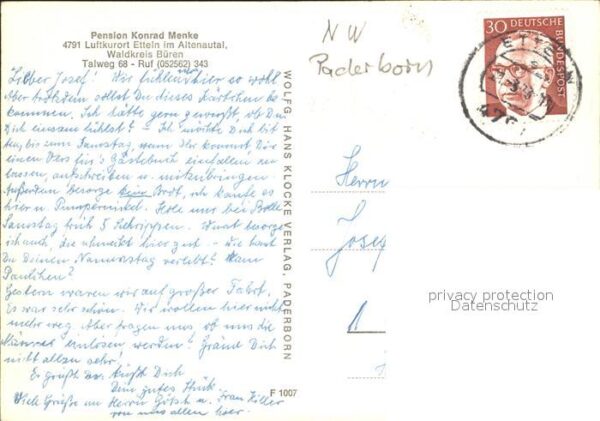 Pension Konrad Menke
4791 Luftkurort Etteln im Altenautal,
Waldkreis Büren
Talweg 68 - Ruf (052562) 343
Lieber Josef! Wir fühlen uns hier so wohl
Aber trotzdem sollst Du dieses Kärtchen be-
kommen. Ich hätte gern gewußt, ob Du
Dich einsam fühlst? - Ich möchte Dich bit-
ten, bis zum Samstag, wenn Ihr kommt Dir
einen Vers für's Gästebuch einfallen zu
lassen, aufschreiben u. mitzubringen.
Außerdem besorge kein Brot, ich kaufe es
hier u. Pumpernickel. Hole uns bei Bolle
Samstag früh 5 Schrippen. Wurst besorge
ich auch, die schmeckt hier gut - Wie hast
Du Deinen Namenstag verlebt? Kam
Paulchen?
Gestern waren wir auf großer Fahrt.
Es war sehr schön. Wir wollen hier nicht
mehr weg. Aber fragen uns, ob uns die
Männer einlösen werden? Gräme Dich
nicht allzu sehr!
Es grüßt u. küßt Dich
Dein gutes Stück.
Viele Grüße an Herrn Götsch u. Frau Ziller
von uns allen hier.
WOLFG. HANS KLOCKE VERLAG, PADERBORN
F 1007
NW
Paderborn
30 DEUTSCHE BUNDESPOST
ETTELN
Herrn
Josef
1
privacy protection
Datenschutz